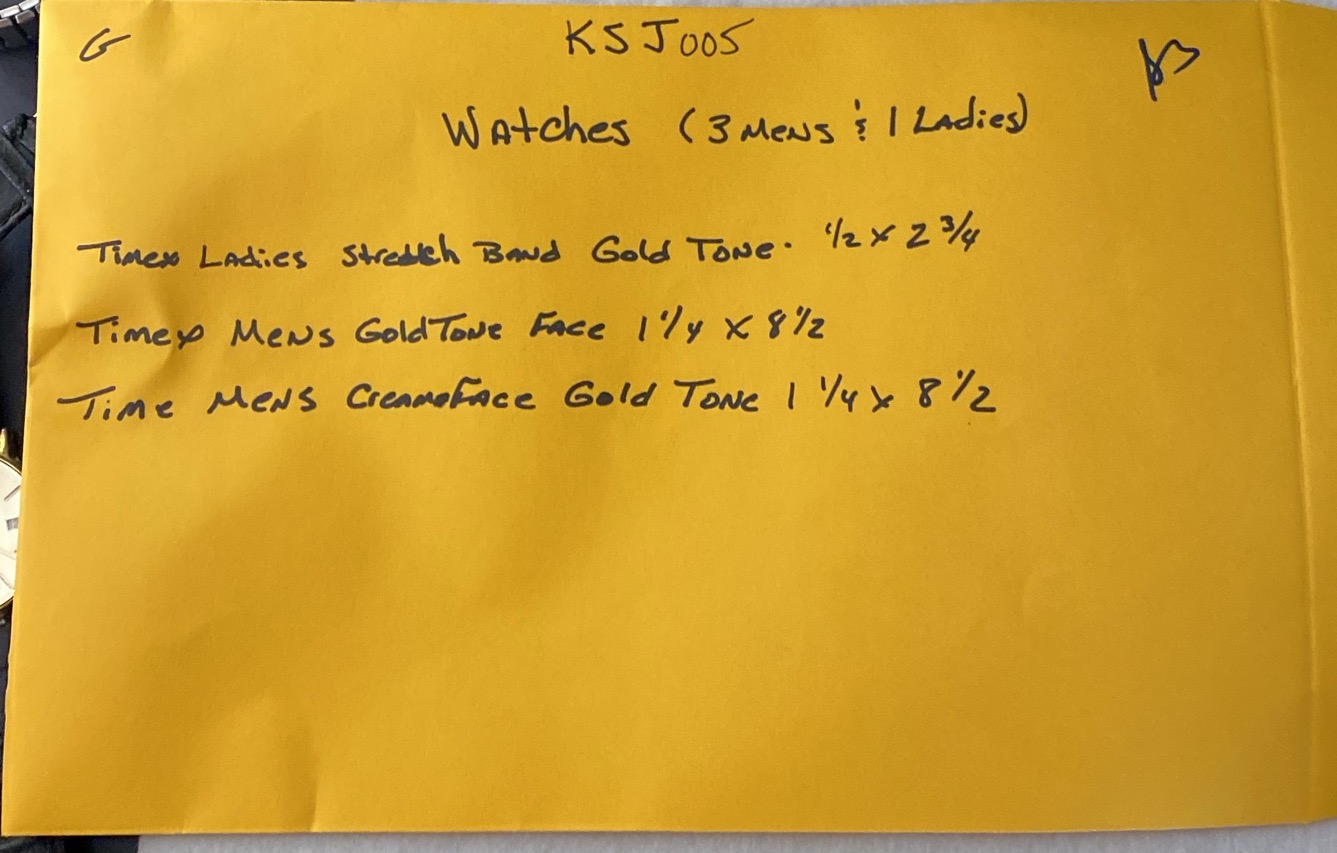 G
KSJ005
Watches (3 Mens & 1 Ladies)
Timex Ladies Stretch Band Gold Tone. 1/2 x 2 3/4
Timex Mens Gold Tone Face 1 1/4 x 8 1/2
Time Mens Creame Face Gold Tone 1 1/4 x 8 1/2